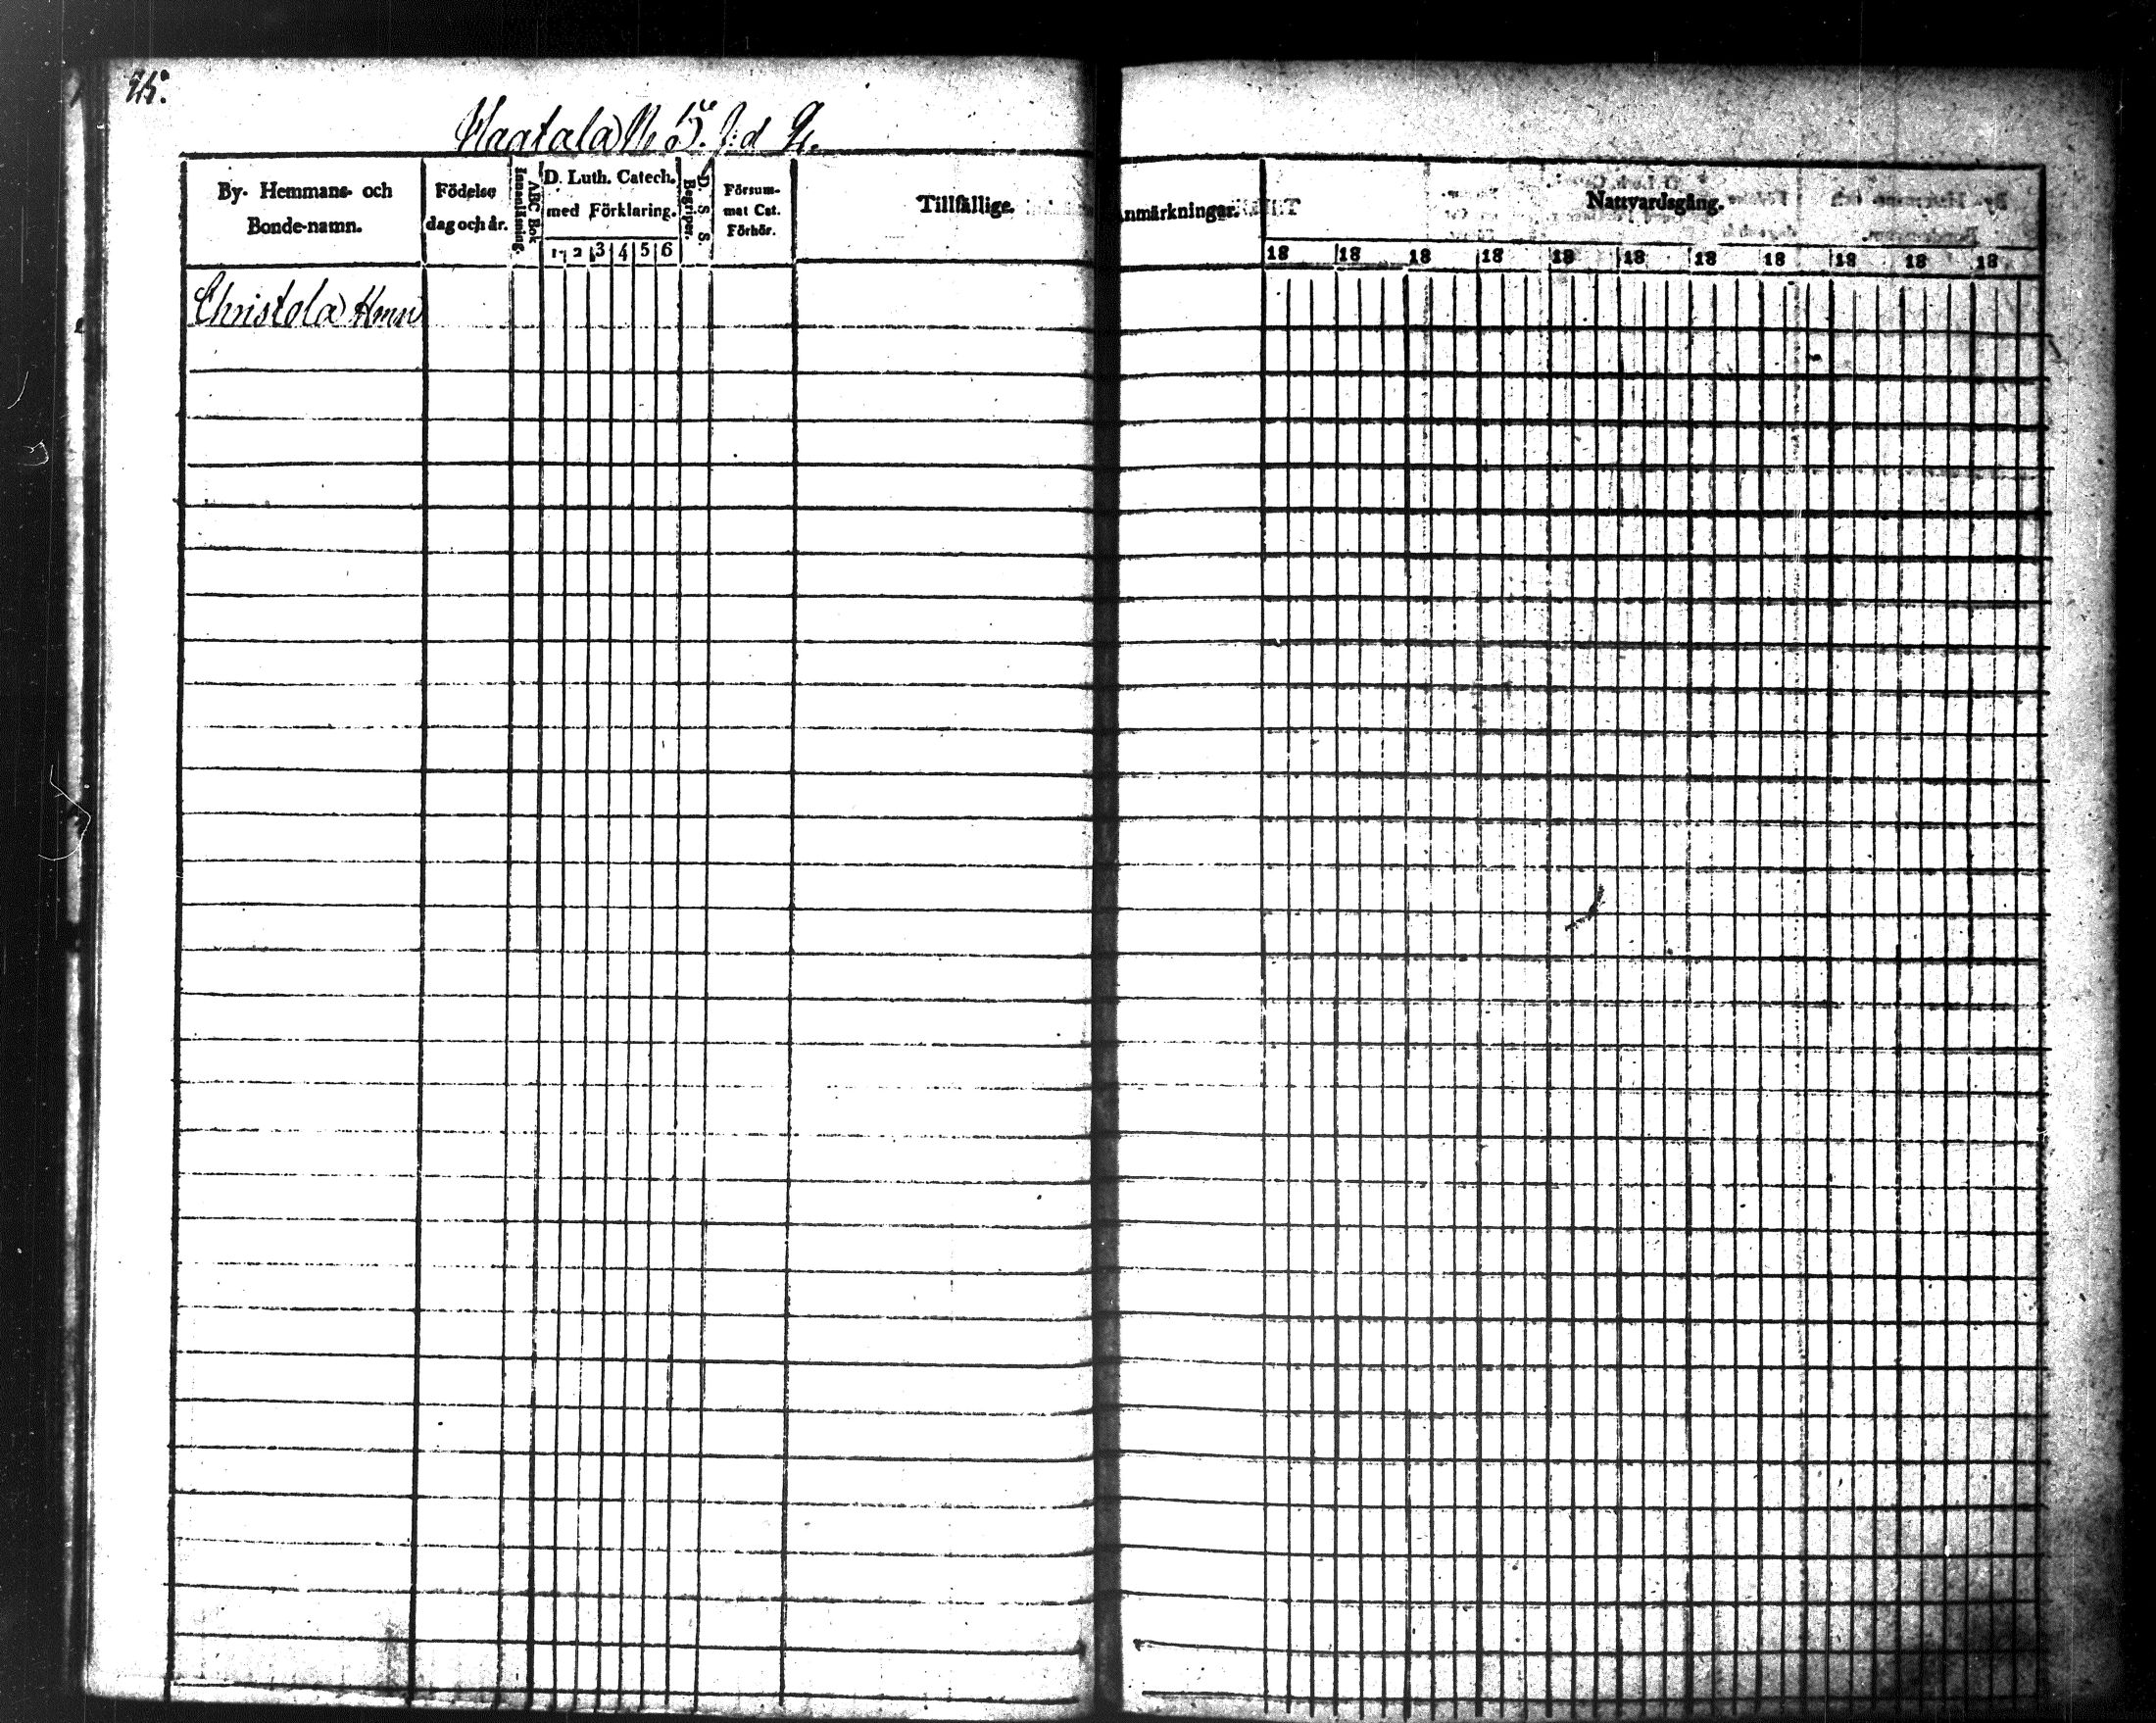 By- Hemmans- och
Bonde-namn.
Födelse
dag och år.
ABC Bok
Innanläsning.
D. Luth. Catech.
med Förklaring.
1 2 3 4 5 6
D. S. S.
Begriper.
Försum-
mat Cat.
Förhör.
Tillfällige
Anmärkningar.
Nattvardsgång.
18 18 18 18 18 18 18 18 18 18 18
Christola Hmn